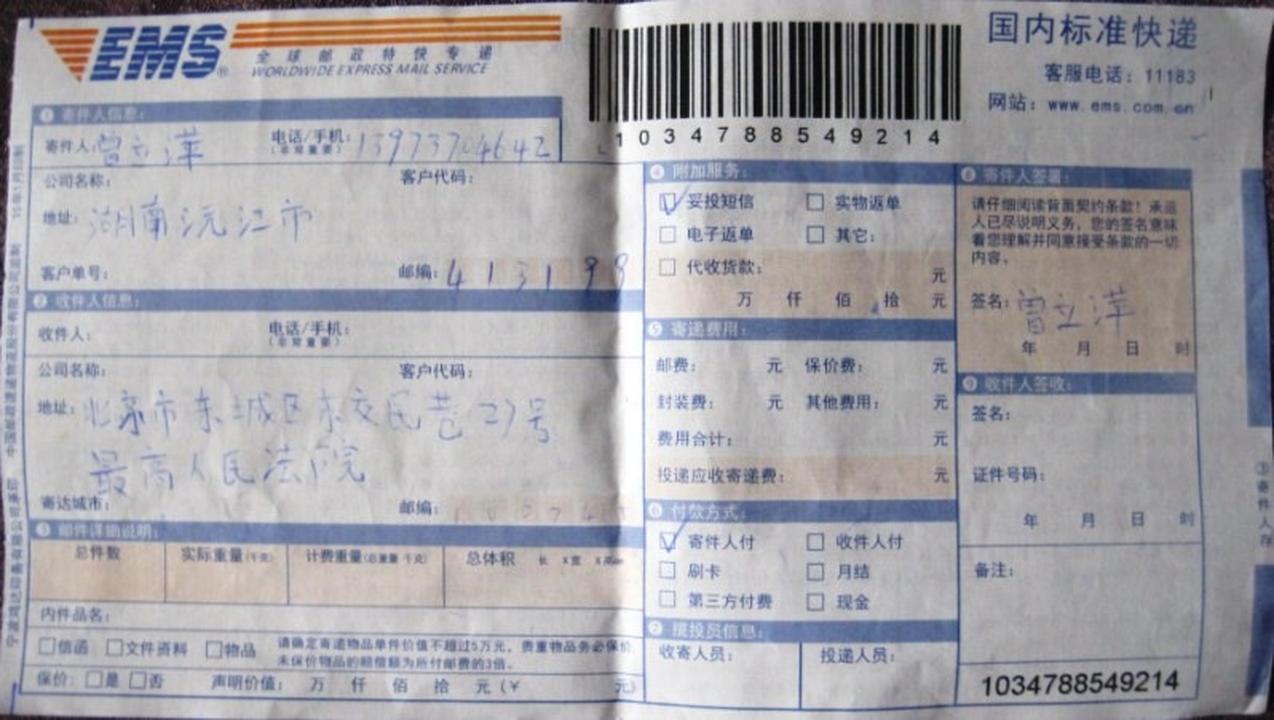 EMS®
全球邮政特快专递
WORLDWIDE EXPRESS MAIL SERVICE
1034788549214
国内标准快递
客服电话：11183
网站：www.ems.com.cn
❶ 寄件人信息：
寄件人：曾立萍 电话/手机：13973704642
（非常重要）
公司名称： 客户代码：
地址：湖南沅江市
客户单号： 邮编：413199
❷ 收件人信息：
收件人： 电话/手机：
（非常重要）
公司名称： 客户代码：
地址：北京市东城区东交民巷27号
最高人民法院
寄达城市： 邮编：100745
❸ 邮件详细说明：
总件数 实际重量（千克） 计费重量（总重量 千克） 总体积 长 X宽 X高
内件品名：
□信函 □文件资料 □物品 请确定寄递物品单件价值不超过5万元，贵重物品务必保价，
未保价物品的赔偿额为所付邮费的3倍。
保价：□是 □否 声明价值： 万 仟 佰 拾 元（￥ 元）
❹ 附加服务：
☑ 妥投短信 □ 实物返单
□ 电子返单 □ 其它：
□ 代收货款： 元
万 仟 佰 拾 元
❺ 寄递费用：
邮费： 元 保价费： 元
封装费： 元 其他费用： 元
费用合计： 元
投递应收寄递费： 元
❻ 付款方式：
☑ 寄件人付 □ 收件人付
□ 刷卡 □ 月结
□ 第三方付费 □ 现金
❼ 揽投员信息：
收寄人员： 投递人员：
❽ 寄件人签署：
请仔细阅读背面契约条款！承运
人已尽说明义务，您的签名意味
着您理解并同意接受条款的一切
内容。
签名：曾立萍
年 月 日 时
❾ 收件人签收：
签名：
证件号码：
年 月 日 时
备注：
1034788549214
③寄件人存